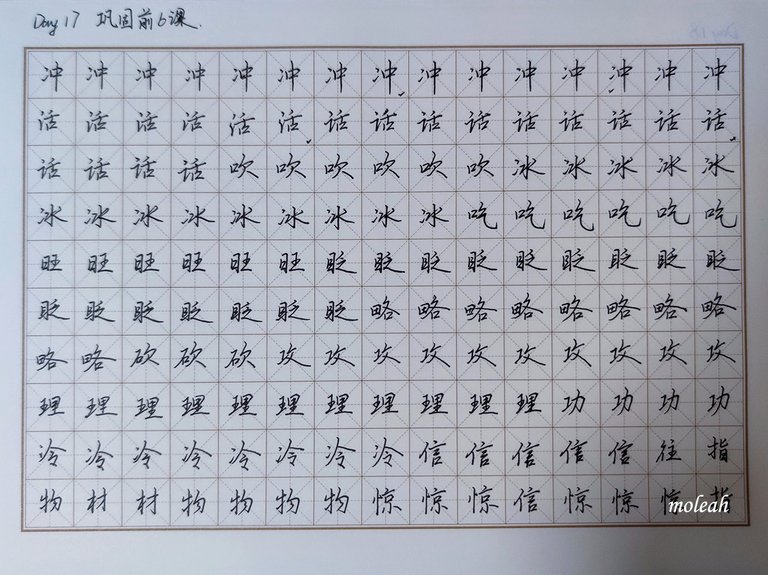 Day 17 巩固前6课.
冲冲冲冲冲冲冲冲冲冲冲冲冲冲冲
活活活活活活话话话话话话话话话
话话话话吹吹吹吹吹吹冰冰冰冰冰
冰冰冰冰冰冰冰冰冰吃吃吃吃吃吃
旺旺旺旺旺旺眨眨眨眨眨眨眨眨眨
眨眨眨眨眨眨眨略略略略略略略略
略略砍砍砍攻攻攻攻攻攻攻攻攻攻
理理理理理理理理理理理功功功功
冷冷冷冷冷冷冷冷信信信信信往指
物材材物物物物惊惊惊信惊惊惊指
moleah